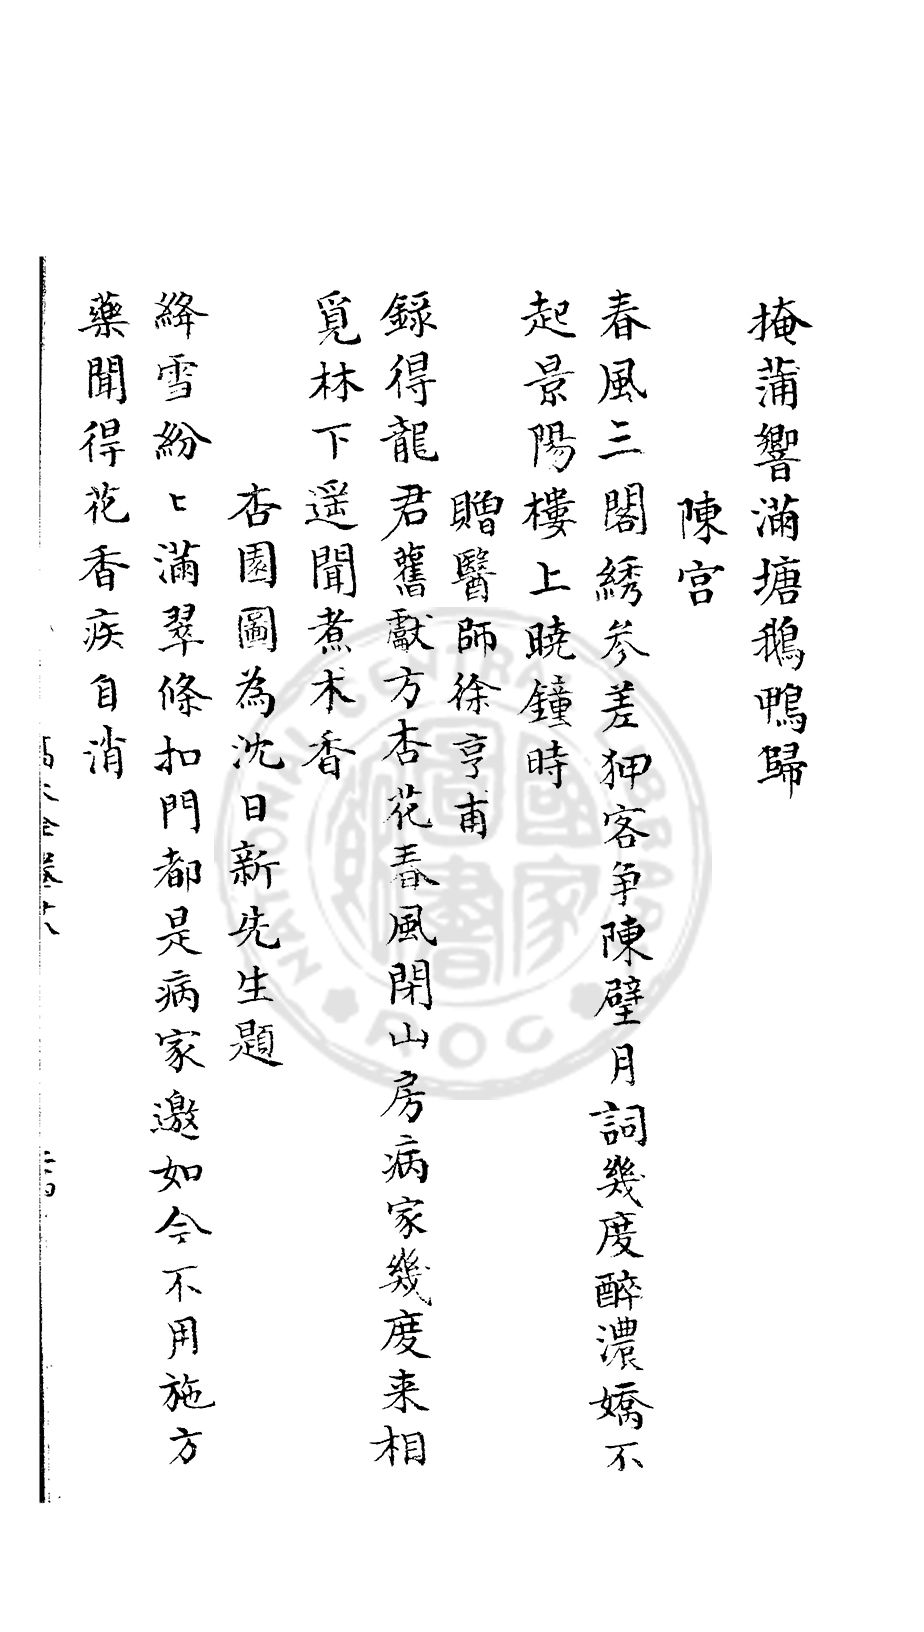 掩蒲響滿塘鵝鴨歸
陳宮
春風三閣綉参差狎客争陳璧月詞幾度醉濃嬌不
起景陽樓上曉鐘時
贈醫師徐亨甫
録得龍君舊獻方杏花春風閉山房病家幾度来相
覓林下遥聞煮术香
杏園圖為沈日新先生題
絳雪紛〻滿翠條扣門都是病家邀如今不用施方
藥聞得花香疾自消
NATIONAL CENTRAL LIBRARY
ROC
國家圖書館